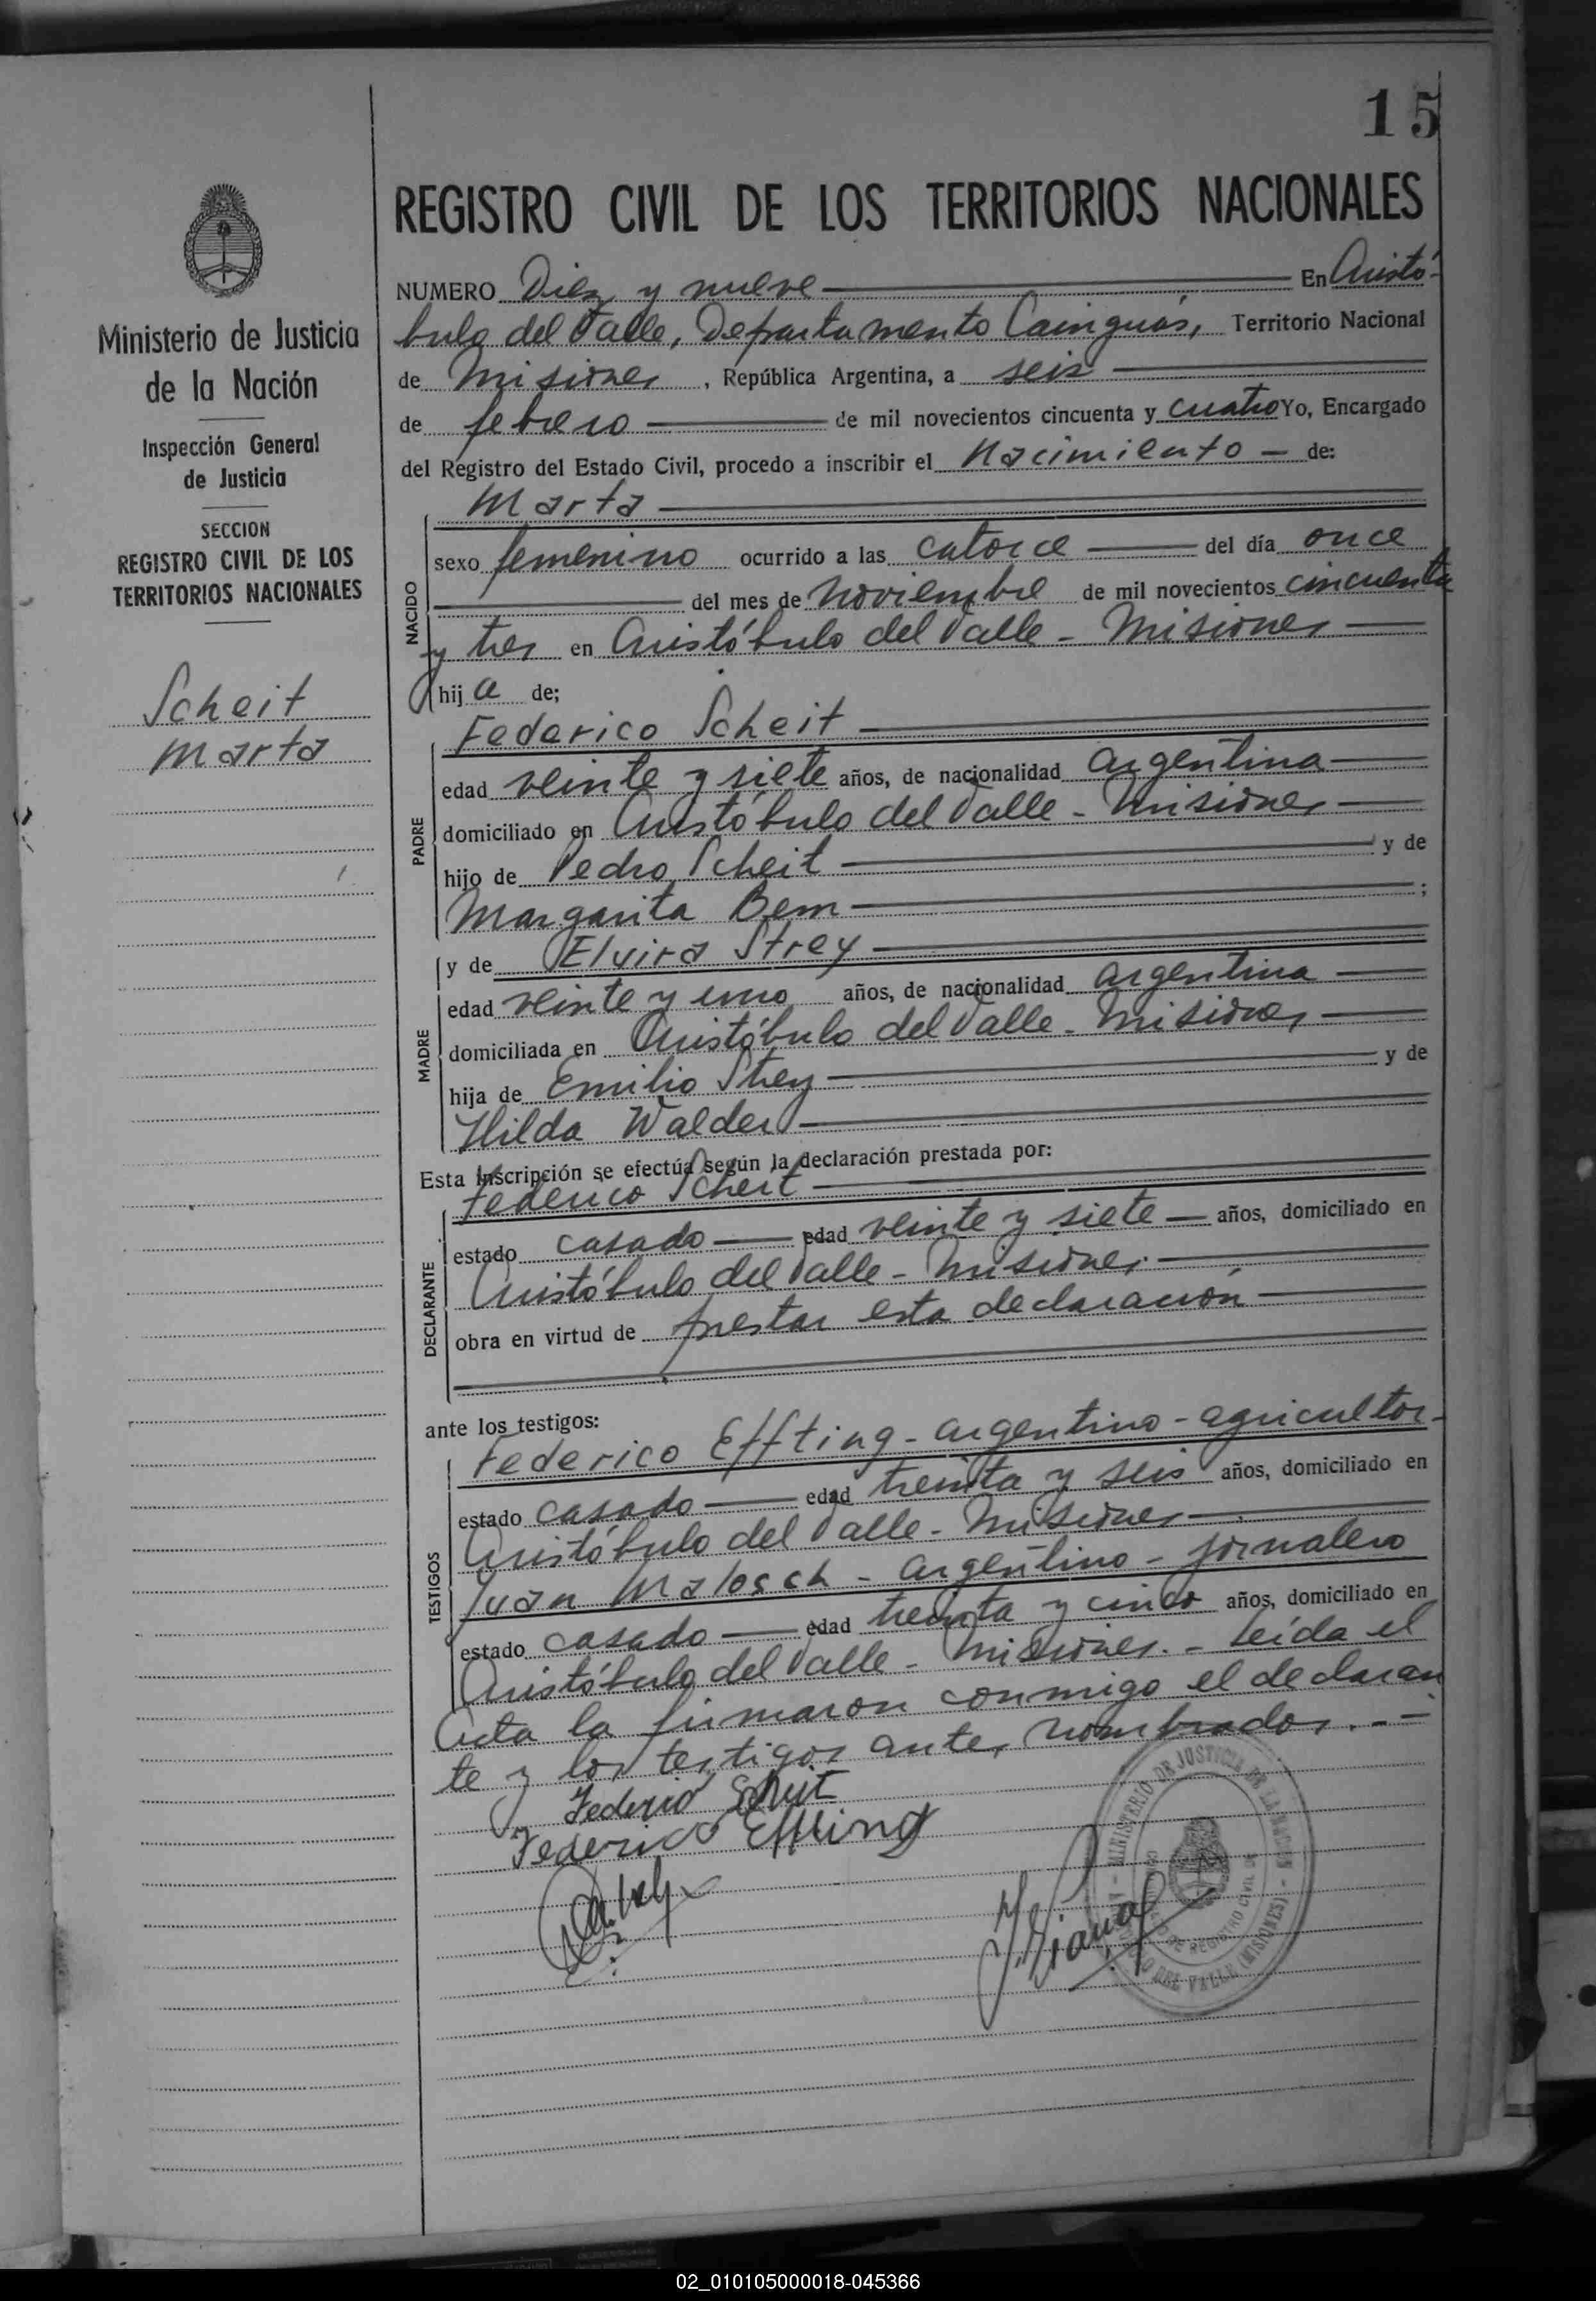 15
REGISTRO CIVIL DE LOS TERRITORIOS NACIONALES
Ministerio de Justicia
de la Nación
Inspección General
de Justicia
SECCION
REGISTRO CIVIL DE LOS
TERRITORIOS NACIONALES
Scheit
Marta
NUMERO Diez y nueve En Aristó-
bulo del Valle, Departamento Cainguás, Territorio Nacional
de Misiones, República Argentina, a seis
de febrero de mil novecientos cincuenta y cuatro Yo, Encargado
del Registro del Estado Civil, procedo a inscribir el Nacimiento - de:
NACIDO
Marta
sexo femenino ocurrido a las catorce del día once
del mes de Noviembre de mil novecientos cincuenta
y tres en Aristóbulo del Valle - Misiones
hija de;
PADRE
Federico Scheit
edad veinte y siete años, de nacionalidad argentina
domiciliado en Aristóbulo del Valle - Misiones
hijo de Pedro Scheit y de
Margarita Bem ;
MADRE
y de Elvira Strey
edad veinte y uno años, de nacionalidad argentina
domiciliada en Aristóbulo del Valle - Misiones
hija de Emilio Strey y de
Hilda Walder
Esta inscripción se efectúa según la declaración prestada por:
DECLARANTE
Federico Scheit
estado casado edad veinte y siete años, domiciliado en
Aristóbulo del Valle - Misiones
obra en virtud de prestar esta declaración
ante los testigos:
TESTIGOS
Federico Effting - argentino - agricultor -
estado casado edad treinta y seis años, domiciliado en
Aristóbulo del Valle - Misiones
Juan Malosch - argentino - jornalero
estado casado edad treinta y cinco años, domiciliado en
Aristóbulo del Valle - Misiones. - Leída el
Acta la firmaron conmigo el declaran
te y los testigos antes nombrados. - -
Federico Scheit
Federico Effting
MINISTERIO DE JUSTICIA DE LA NACION
REGISTRO CIVIL DE
DEL VALLE (MISIONES)
02_010105000018-045366